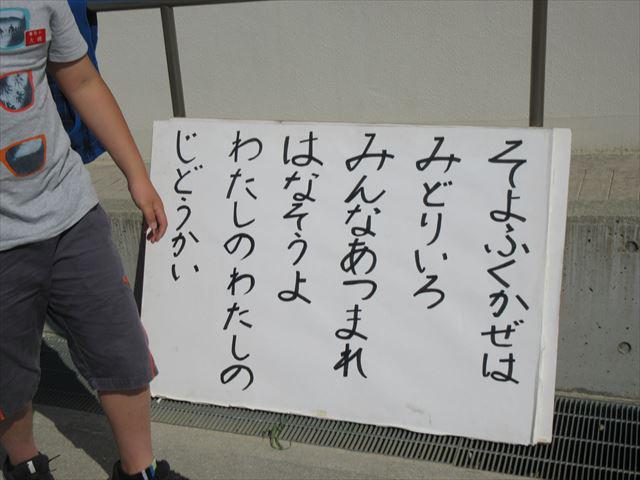 そよふくかぜは
みどりいろ
みんなあつまれ
はなそうよ
わたしのわたしの
じどうかい